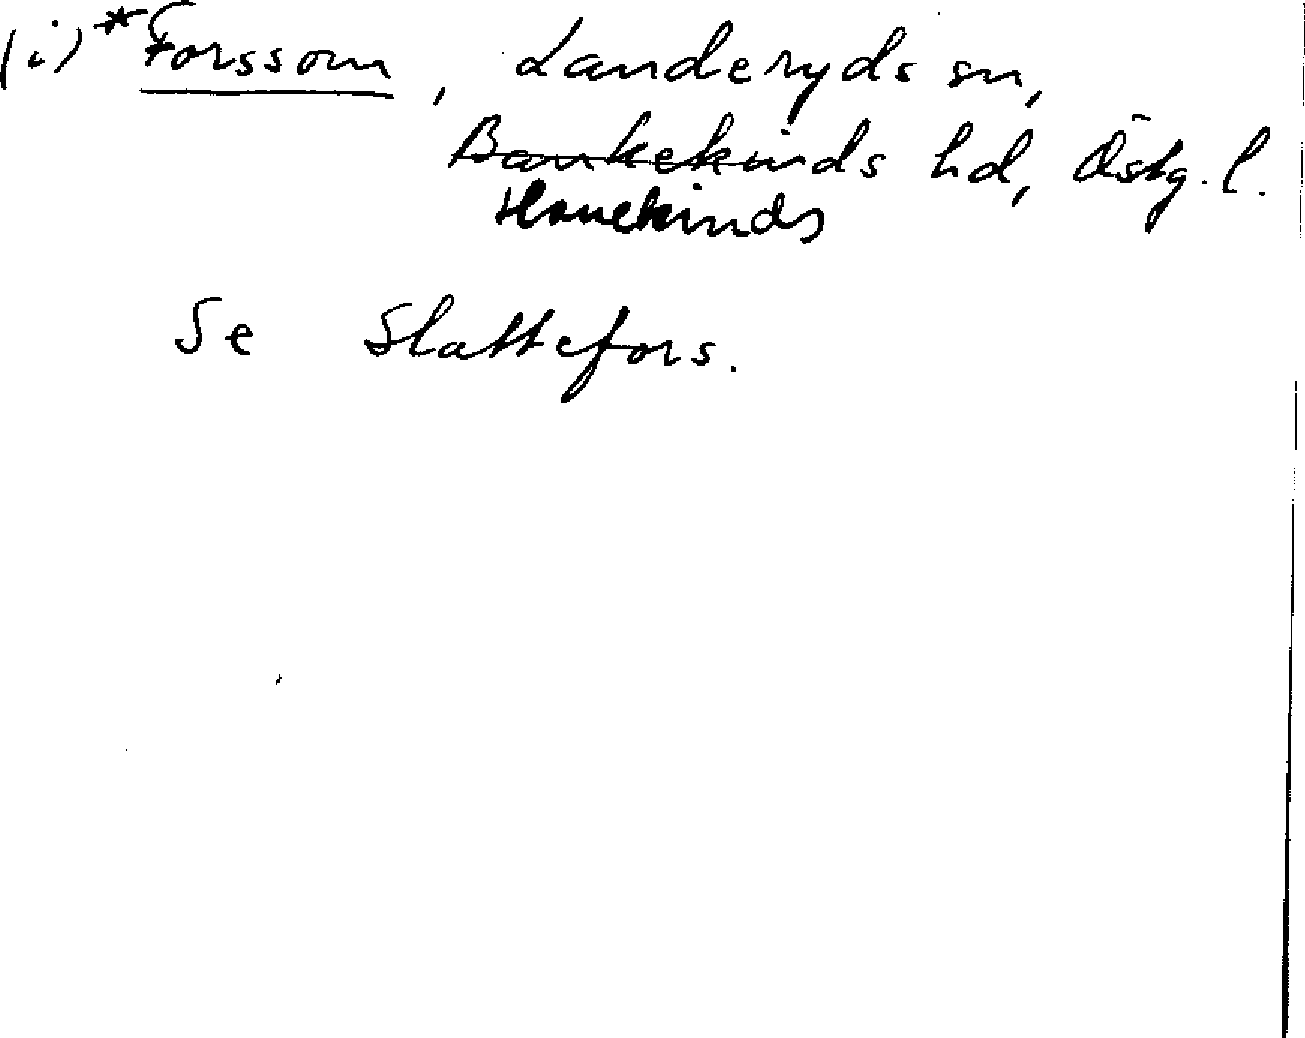 (i) *Forssom, Landeryds sn,
Bankekinds hd, Östg. l.
Hanekinds
Se Slattefors.